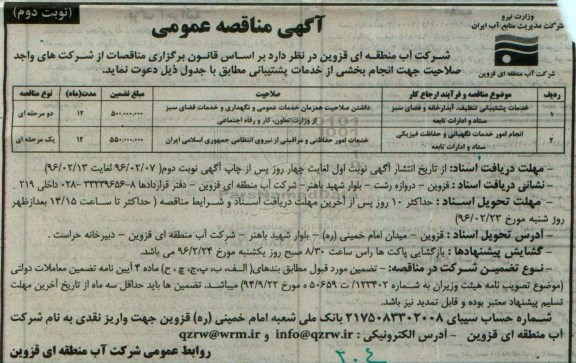 (نوبت دوم)
آگهی مناقصه عمومی
وزارت نیرو
شرکت مدیریت منابع آب ایران
شرکت آب منطقه ای قزوین
شرکت آب منطقه ای قزوین در نظر دارد بر اساس قانون برگزاری مناقصات از شرکت های واجد
صلاحیت جهت انجام بخشی از خدمات پشتیبانی مطابق با جدول ذیل دعوت نماید.
ردیف موضوع مناقصه و فرآیند ارجاع کار صلاحیت مبلغ تضمین مدت(ماه) نوع مناقصه
۱ خدمات پشتیبانی تنظیف، آبدارخانه و فضای سبز ستاد و ادارات تابعه داشتن صلاحیت همزمان خدمات عمومی و نگهداری و خدمات فضای سبز از وزارت تعاون، کار و رفاه اجتماعی ۵۰۰.۰۰۰.۰۰۰ ۱۲ دو مرحله ای
۲ انجام امور خدمات نگهبانی و حفاظت فیزیکی ستاد و ادارات تابعه خدمات امور حفاظتی و مراقبتی از نیروی انتظامی جمهوری اسلامی ایران ۵۵۰.۰۰۰.۰۰۰ ۱۲ یک مرحله ای
- مهلت دریافت اسناد: از تاریخ انتشار آگهی نوبت اول لغایت چهار روز پس از چاپ آگهی نوبت دوم( ۹۶/۰۲/۰۷ لغایت ۹۶/۰۲/۱۳)
- نشانی دریافت اسناد : قزوین – دروازه رشت – بلوار شهید باهنر– شرکت آب منطقه ای قزوین – دفتر قراردادها ۸-۳۳۲۳۹۶۵۶-۰۲۸ داخلی ۲۱۹ .
- مهلت تحویل اسناد : حداکثر ۱۰ روز پس از آخرین مهلت دریافت اسناد و شرایط مناقصه ( حداکثر تا ساعت ۱۴/۱۵ بعدازظهر
روز شنبه مورخ ۹۶/۰۲/۲۳)
- آدرس تحویل اسناد : قزوین – میدان امام خمینی (ره) – بلوار شهید باهنر – شرکت آب منطقه ای قزوین – دبیرخانه حراست .
- گشایش پیشنهادها : بازگشایی پاکت ها راس ساعت ۸/۳۰ صبح روز یکشنبه مورخ ۹۶/۲/۲۴ می باشد.
- نوع تضمین شرکت در مناقصه: – تضمین مورد قبول مطابق بندهای( الف، ب، پ،ج، چ، ح) ماده ۴ آیین نامه تضمین معاملات دولتی
(موضوع تصویب نامه هیئت وزیران به شماره ۱۲۳۴۰۲/ت ۵۰۶۵۹ ه مورخ ۹۴/۹/۲۲) میباشد. تضمین ها باید حداقل سه ماه از تاریخ آخرین مهلت
تسلیم پیشنهاد معتبر بوده و قابل تمدید نیز باشد.
شماره حساب سیبای ۲۱۷۵۰۸۳۳۰۲۰۰۸ بانک ملی شعبه امام خمینی (ره) قزوین جهت واریز نقدی به نام شرکت
آب منطقه ای قزوین - آدرس الکترونیکی : info@qzrw.ir و qzrw@wrm.ir
روابط عمومی شرکت آب منطقه ای قزوین
۲۰۴